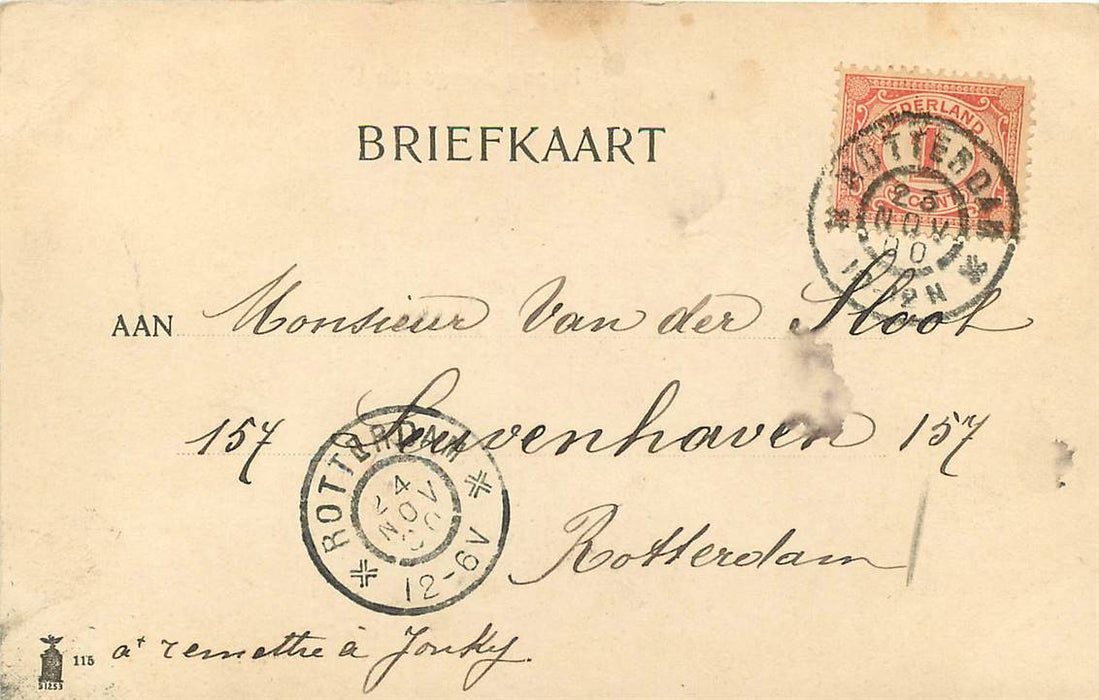 BRIEFKAART
NEDERLAND
1
CENT
ROTTERDAM
23
NOV
00
AAN Monsieur Van der Sloot
157 Leuvenhaven 157
Rotterdam
ROTTERDAM
24
NOV
00
12-6V
a remettre à Jonky.
115
31253